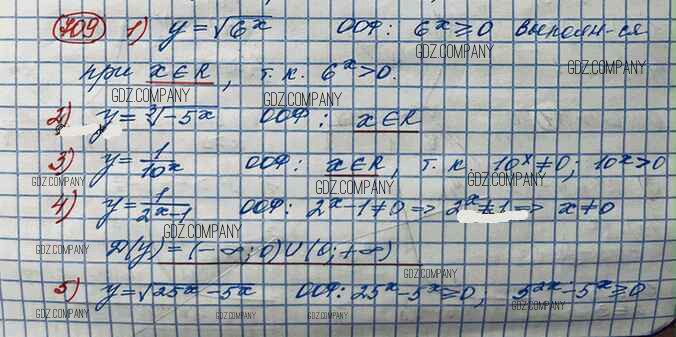 709 1) y = √6ˣ ООФ: 6ˣ ≥ 0 выполн-ся
GDZ.COMPANY GDZ.COMPANY
при x ∈ R, т.к. 6ˣ > 0.
GDZ.COMPANY GDZ.COMPANY GDZ.COMPANY
2) y = ∛-5ˣ ООФ: x ∈ R
3) y = 1/10ˣ ООФ: x ∈ R, т.к. 10ˣ ≠ 0; 10ˣ > 0
GDZ.COMPANY GDZ.COMPANY GDZ.COMPANY
4) y = 1/(2ˣ-1) ООФ: 2ˣ - 1 ≠ 0 => 2ˣ ≠ 1 => x ≠ 0
GDZ.COMPANY
Д(y) = (-∞; 0) ∪ (0; +∞)
GDZ.COMPANY GDZ.COMPANY GDZ.COMPANY
5) y = √25ˣ - 5ˣ ООФ: 25ˣ - 5ˣ ≥ 0; 5²ˣ - 5ˣ ≥ 0
GDZ.COMPANY GDZ.COMPANY GDZ.COMPANY GDZ.COMPANY